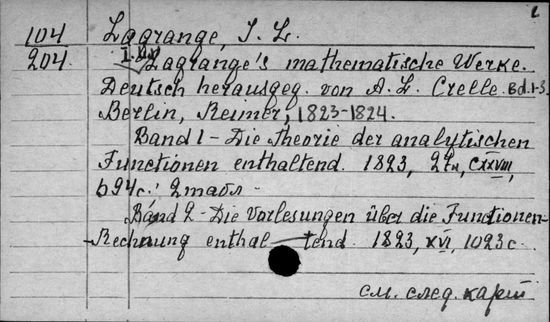 104 Lagrange, J. L.
204. Lagrange's mathematische Werke.
Deutsch herausgeg. von A. L. Crelle. Bd. 1-3.
Berlin, Reimer, 1823-1824.
Band 1 - Die Theorie der analytischen
Functionen enthaltend. 1823, CXXVIII,
694 c.; 2 табл -
Band 2 - Die Vorlesungen über die Functionen-
Rechnung enthal - tend. 1823, XVI, 1023 c.
см. след. карт